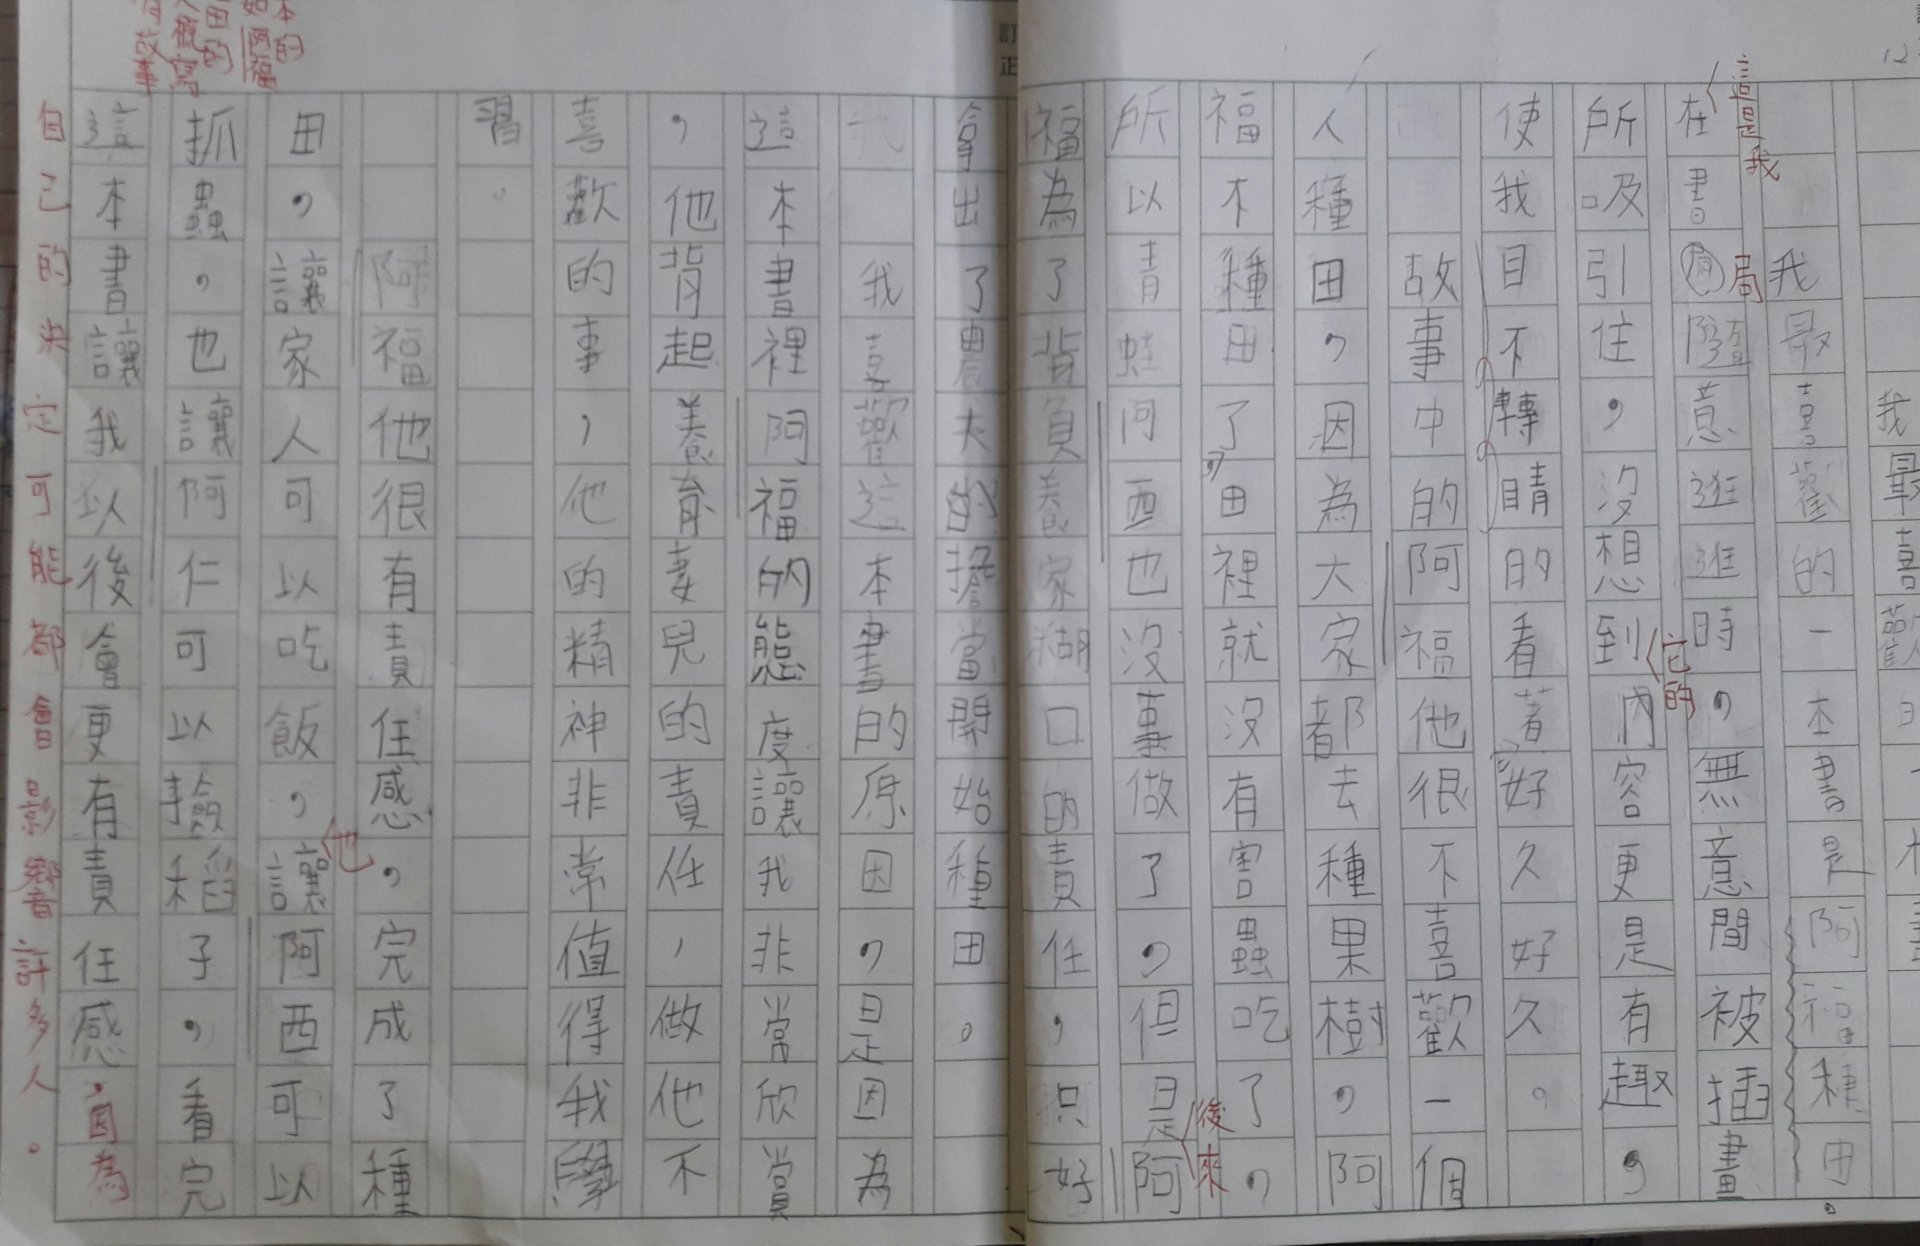 12
我最喜歡的一
我最喜歡的一本書是阿福種田。
這是我
在書局隨意逛逛時，無意間被插畫
所吸引住，沒想到內容更是有趣，
它的
使我目不轉睛的看著，好久好久。
故事中的阿福他很不喜歡一個
人種田，因為大家都去種果樹，阿
福不種田了，田裡就沒有害蟲吃了，
後來
所以青蛙阿西也沒事做了，但是阿
福為了背負養家糊口的責任，只好
拿出了農夫的擔當開始種田。
我喜歡這本書的原因，是因為
這本書裡阿福的態度讓我非常欣賞
，他背起養育妻兒的責任，做他不
喜歡的事，他的精神非常值得我學
習。
阿福他很有責任感，完成了種
田，讓家人可以吃飯，讓阿西可以
他
抓蟲，也讓阿仁可以撿稻子，看完
這本書讓我以後會更有責任感，因為
自己的決定可能都會影響許多人。
訂正